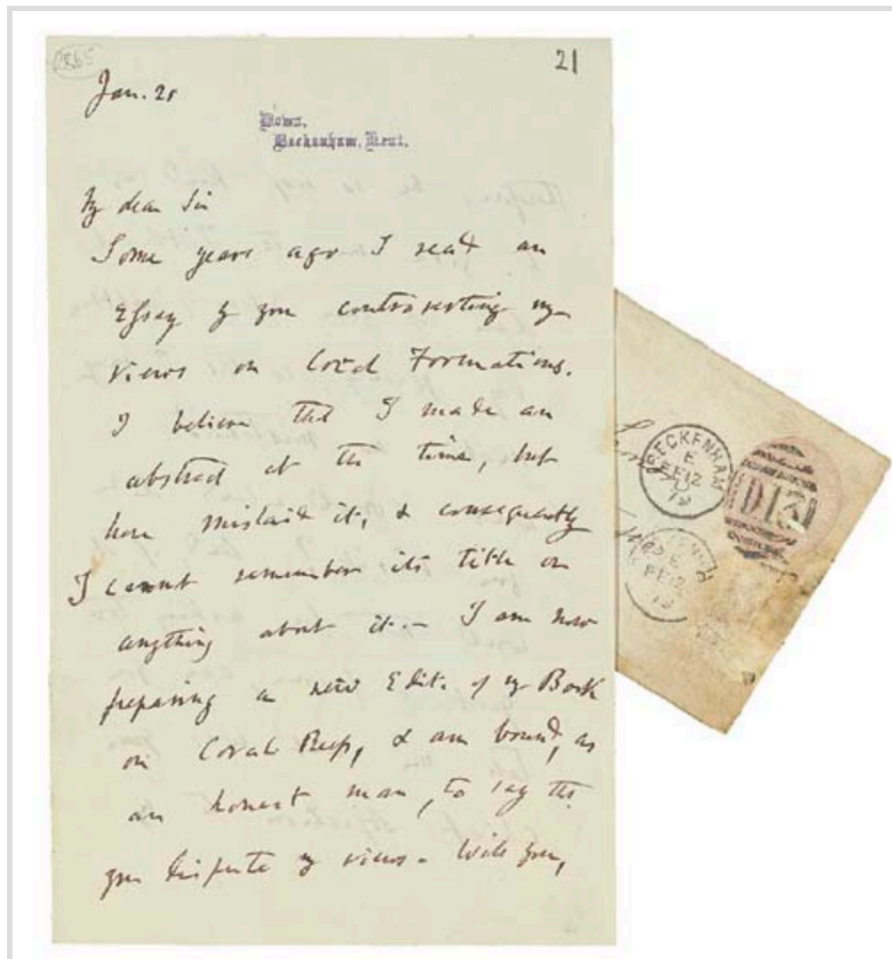 21
Jan. 21
Down,
Beckenham, Kent.
My dear Sir
Some years ago I read an
Essay by you controverting my
views on Coral Formations.
I believe that I made an
abstract at the time, but
have mislaid it, & consequently
I cannot remember its title or
anything about it.— I am now
preparing a new Edit. of my Book
on Coral Reefs, & am bound, as
an honest man, to say that
you dispute my views. Will you,
BECKENHAM
E
FE 12
D13
E
FE 12